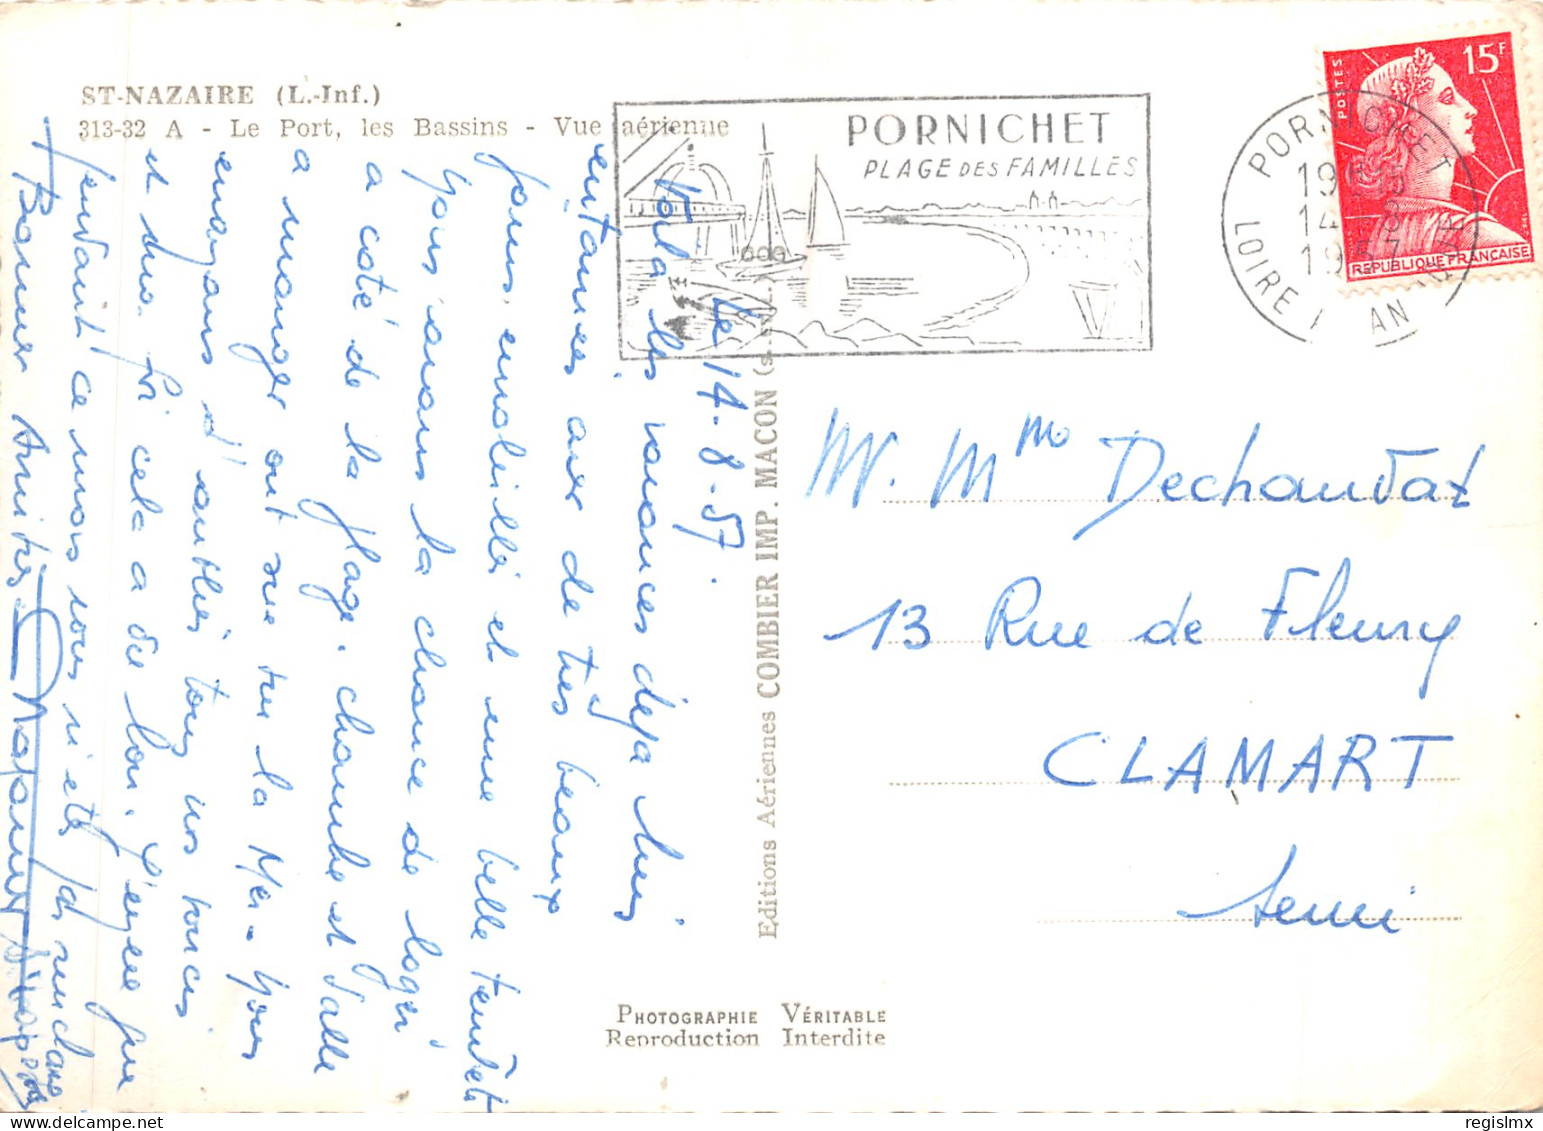 ST-NAZAIRE (L.-Inf.)
313-32 A - Le Port, les Bassins - Vue aérienne
PORNICHET
PLAGE DES FAMILLES
PORNICHET
LOIRE
14-8
1957
15F
POSTES
REPUBLIQUE FRANCAISE
Le 14-8-57.
Voila les vacances déja bien
entamées avec de très beaux
jours, ensoleillé et une belle
Nous avons la chance de loger
a coté de la plage. chambre et salle
a manger ont vue sur la Mer. Nous
essayons d'oublier tous nos soucis
et dieu si cela a du bon. J'espere que
pendant ce mois vous n'etes pas
Bonnes Amities
M. Mme Dechaudat
13 Rue de Fleury
CLAMART
Seine
Editions Aériennes COMBIER IMP. MACON
PHOTOGRAPHIE VÉRITABLE
Reproduction Interdite
regislmx